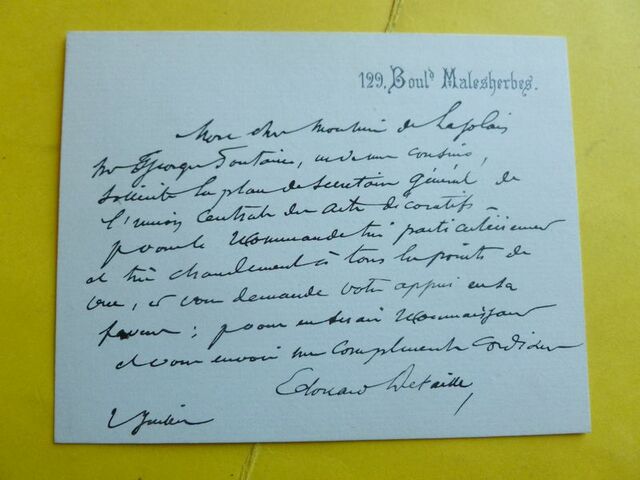 129, Boul^d Malesherbes.
Mon cher Monsieur de Lajolais
Mr Georges Fontaine, un de mes cousins,
sollicite la place de secrétaire général de
l'union Centrale des arts décoratifs –
je vous le recommande très particulièrement
et très chaudement à tous les points de
vue, et vous demande votre appui en sa
faveur ; je vous en serai reconnaissant
et vous envoie mes compliments cordiaux
Edouard Detaille